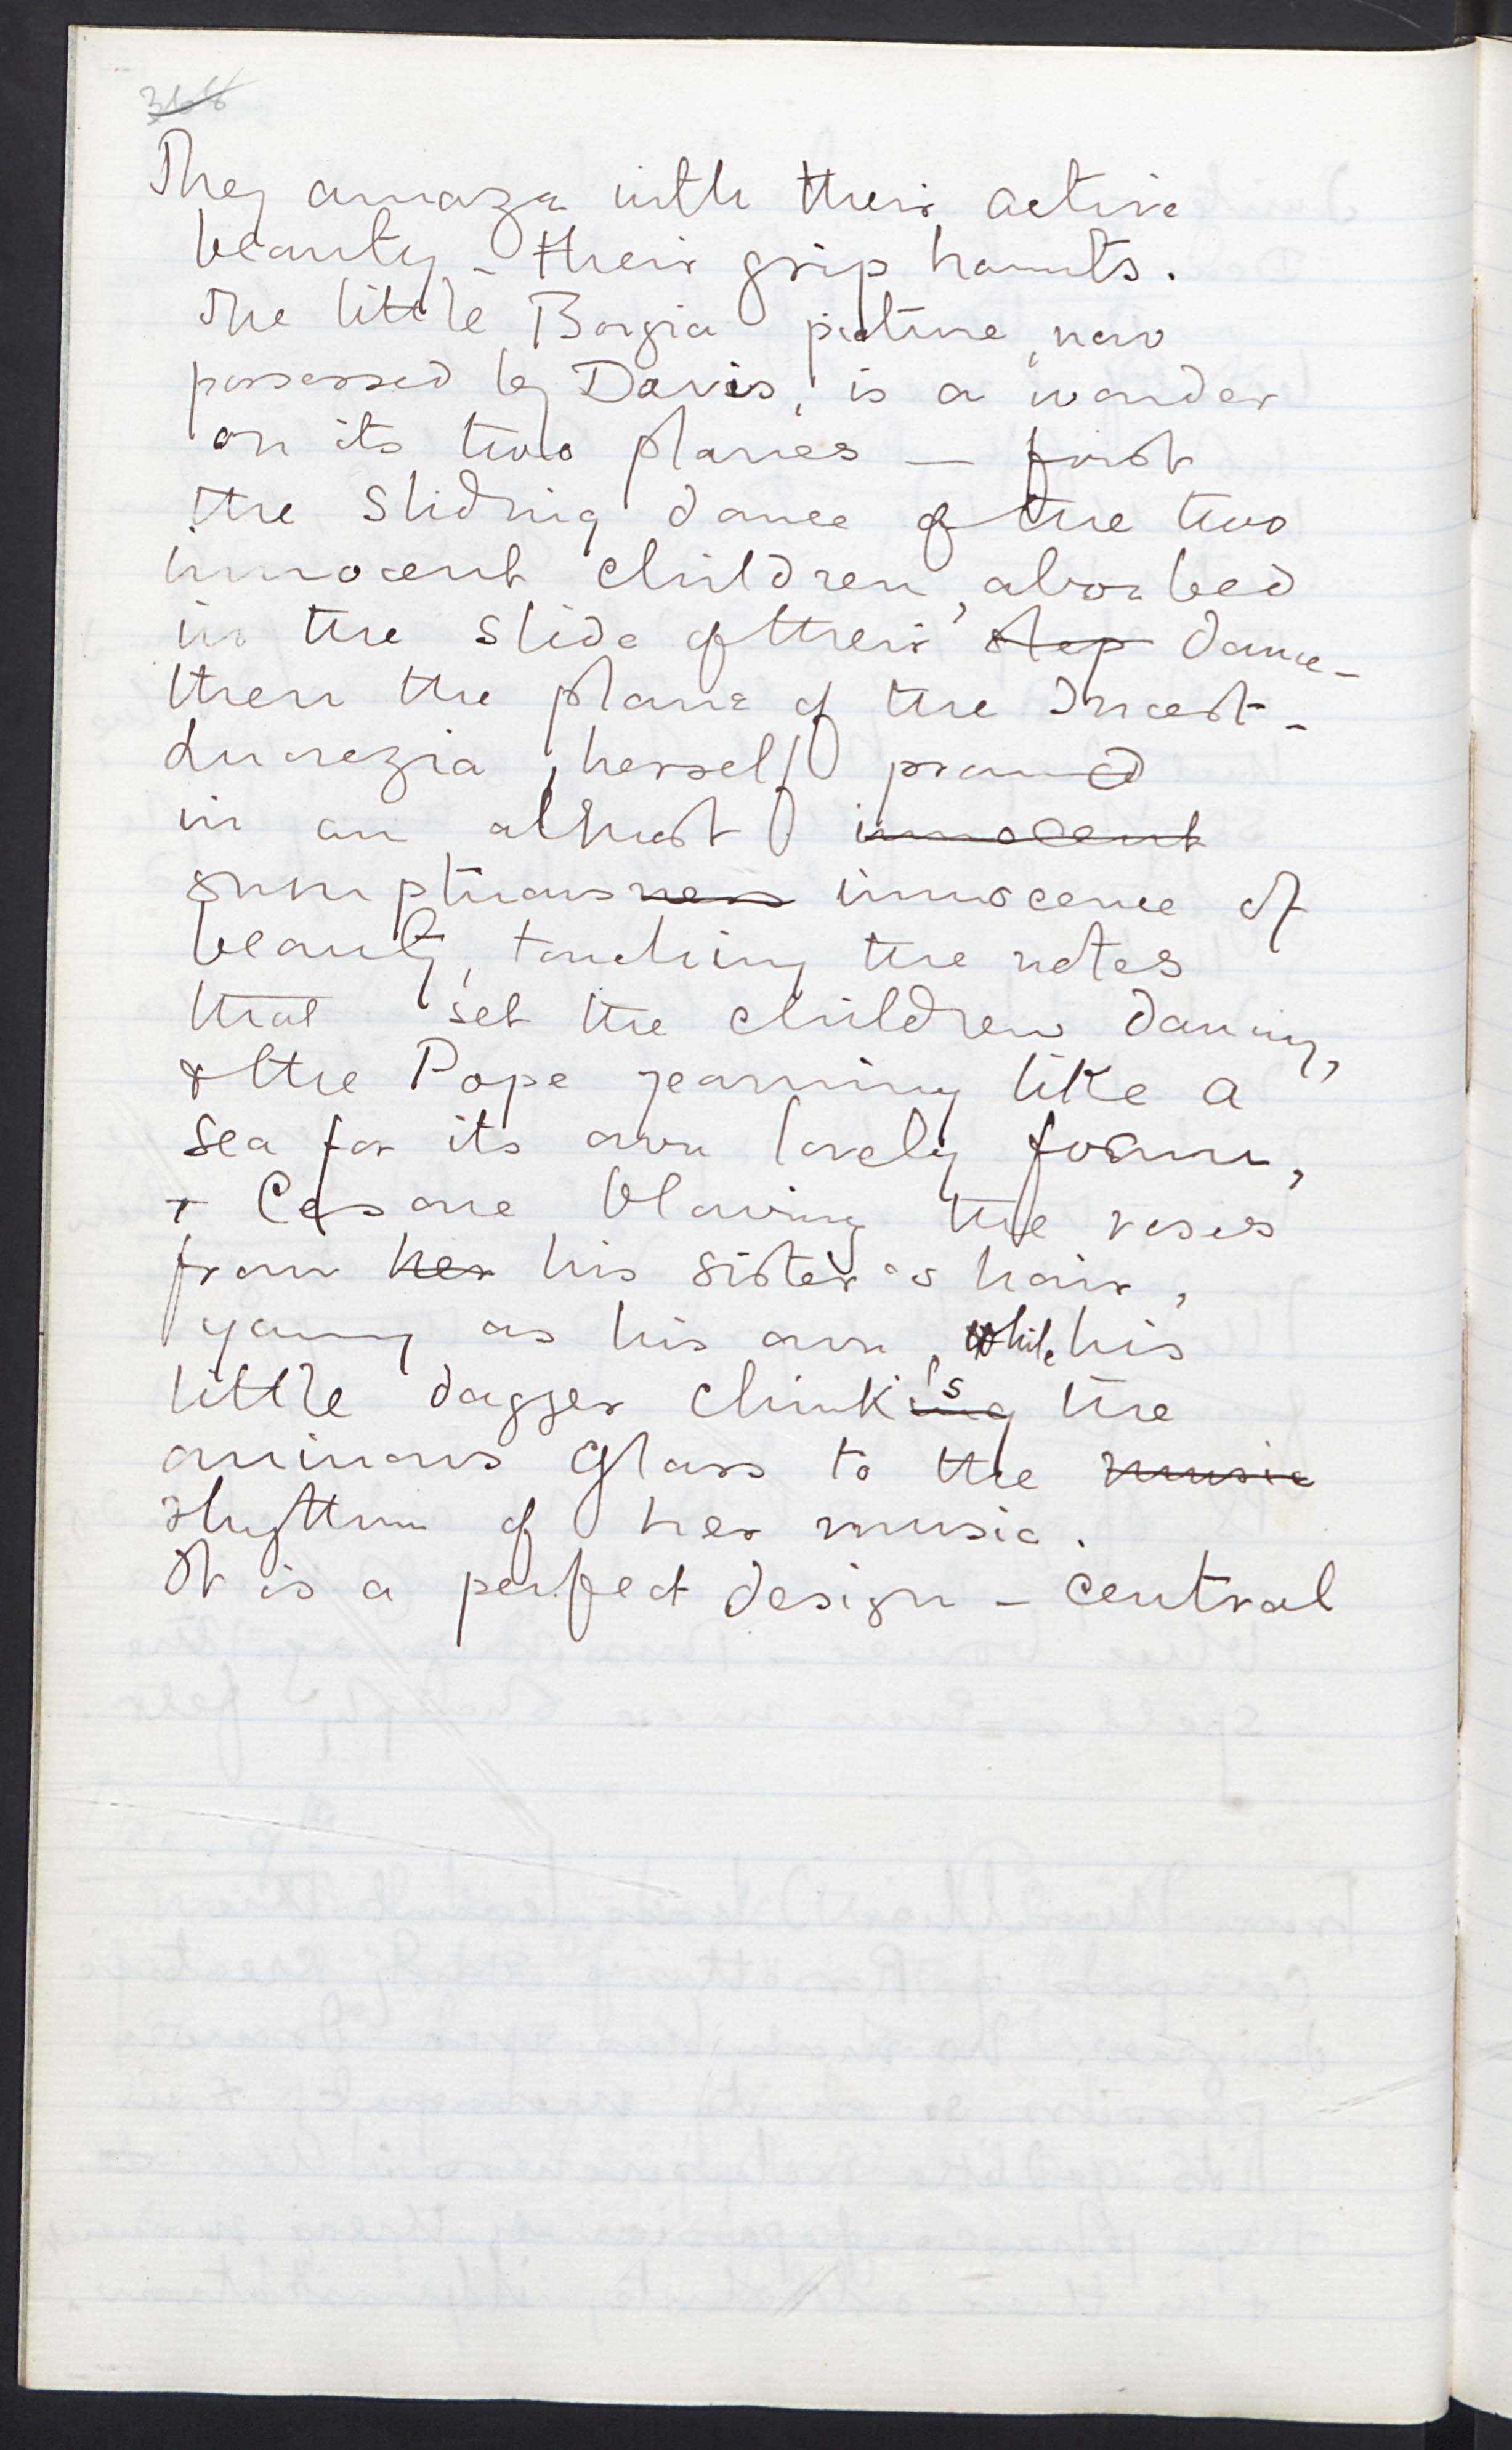 They amaze with their active
beauty – their grip haunts.
The little Borgia picture, now
possessed by Davis, is a wonder
on its two planes – first
the sliding dance of the two
innocent children, absorbed
in the slide of their step dance –
then the plane of the Incest –
Lucrezia, herself proud
in an almost innocent
sumptuousness innocence of
beauty, touching the notes
that set the children dancing,
& the Pope yearning like a
sea for its own lovely foam,
+ Cesare blowing the roses
from her his sister's hair,
young as his own, while his
little dagger clinking s the
ominous glass to the music
rhythm of her music.
It is a perfect design – central